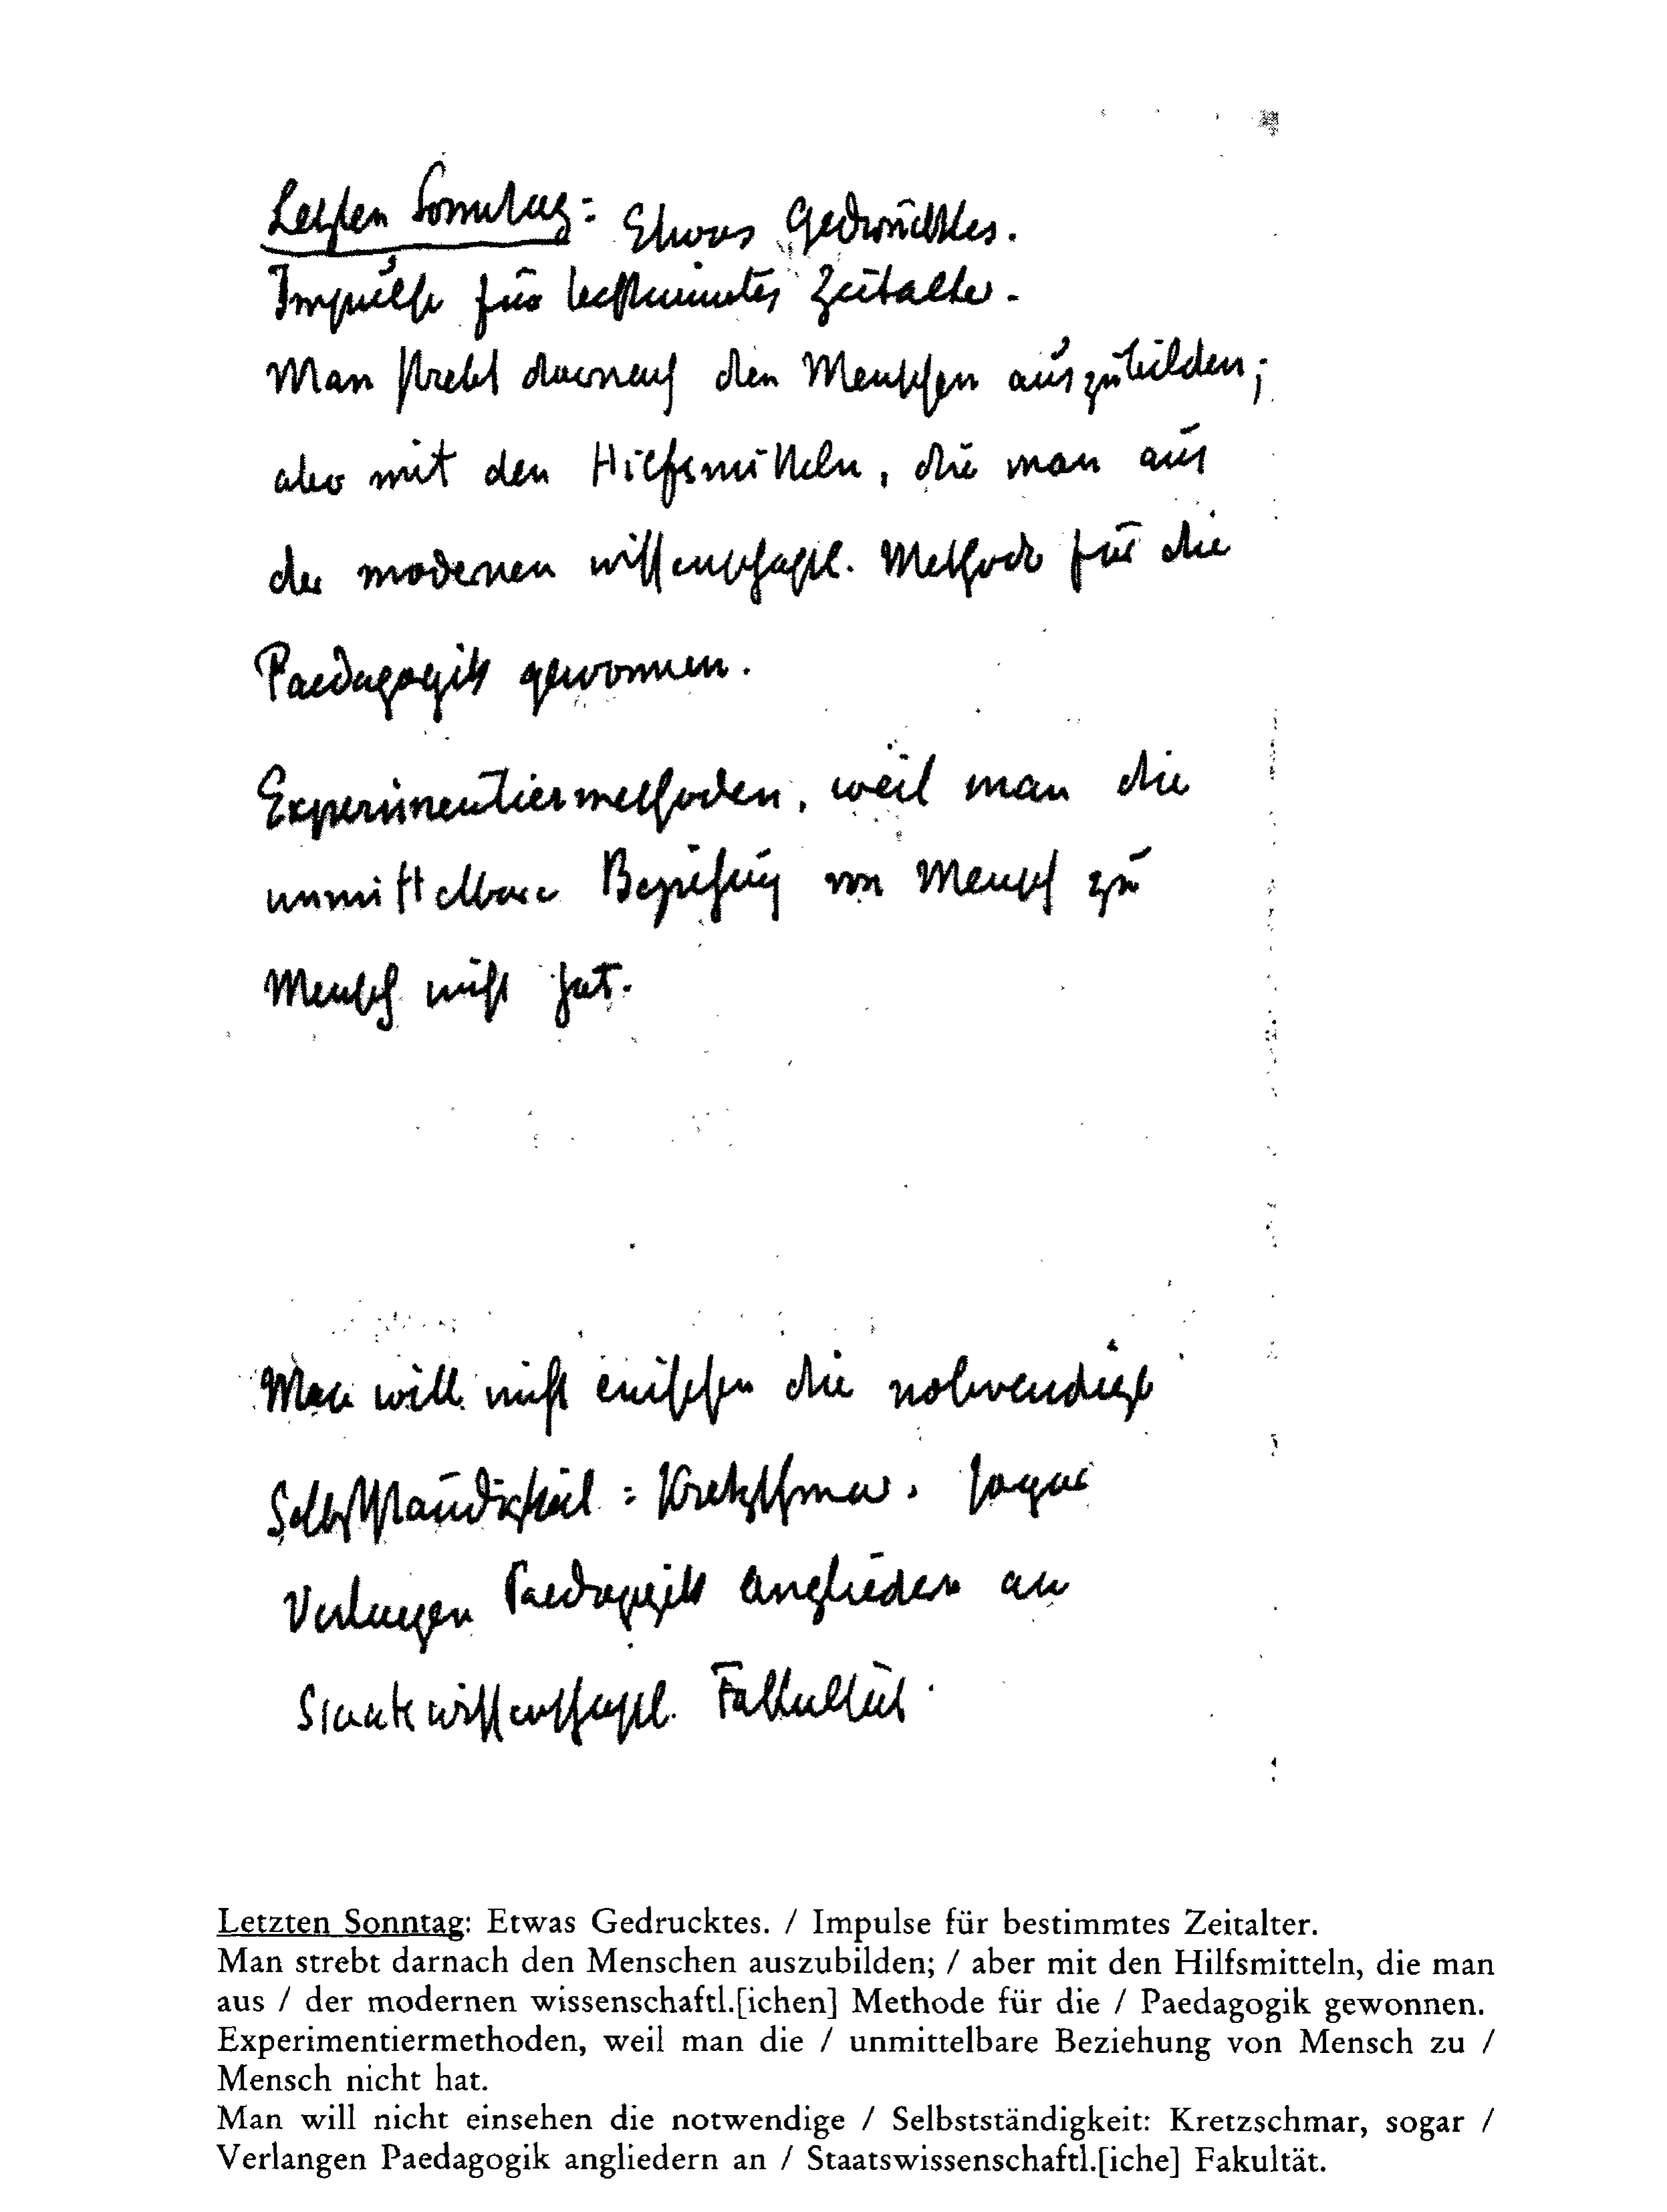 Letzten Sonntag: Etwas Gedrucktes.
Impulse für bestimmtes Zeitalter.
Man strebt darnach den Menschen auszubilden;
aber mit den Hilfsmitteln, die man aus
der modernen wissenschaftl. Methode für die
Paedagogik gewonnen.
Experimentiermethoden, weil man die
unmittelbare Beziehung von Mensch zu
Mensch nicht hat.
Man will nicht einsehen die notwendige
Selbstständigkeit: Kretzschmar, sogar
Verlangen Paedagogik angliedern an
Staatswissenschaftl. Fakultät.
Letzten Sonntag: Etwas Gedrucktes. / Impulse für bestimmtes Zeitalter.
Man strebt darnach den Menschen auszubilden; / aber mit den Hilfsmitteln, die man
aus / der modernen wissenschaftl.[ichen] Methode für die / Paedagogik gewonnen.
Experimentiermethoden, weil man die / unmittelbare Beziehung von Mensch zu /
Mensch nicht hat.
Man will nicht einsehen die notwendige / Selbstständigkeit: Kretzschmar, sogar /
Verlangen Paedagogik angliedern an / Staatswissenschaftl.[iche] Fakultät.